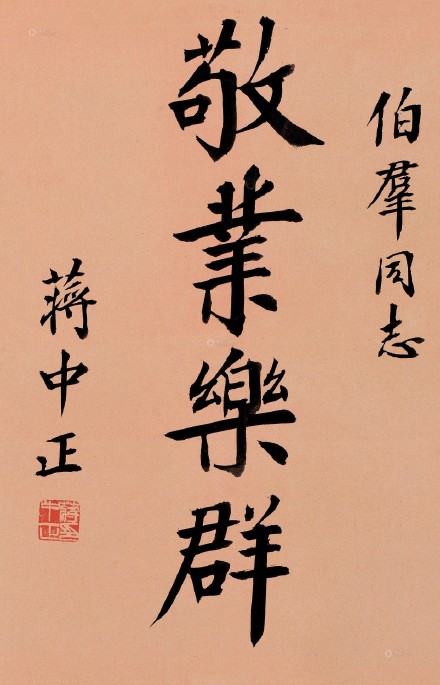 伯羣同志
敬業樂群
蔣中正